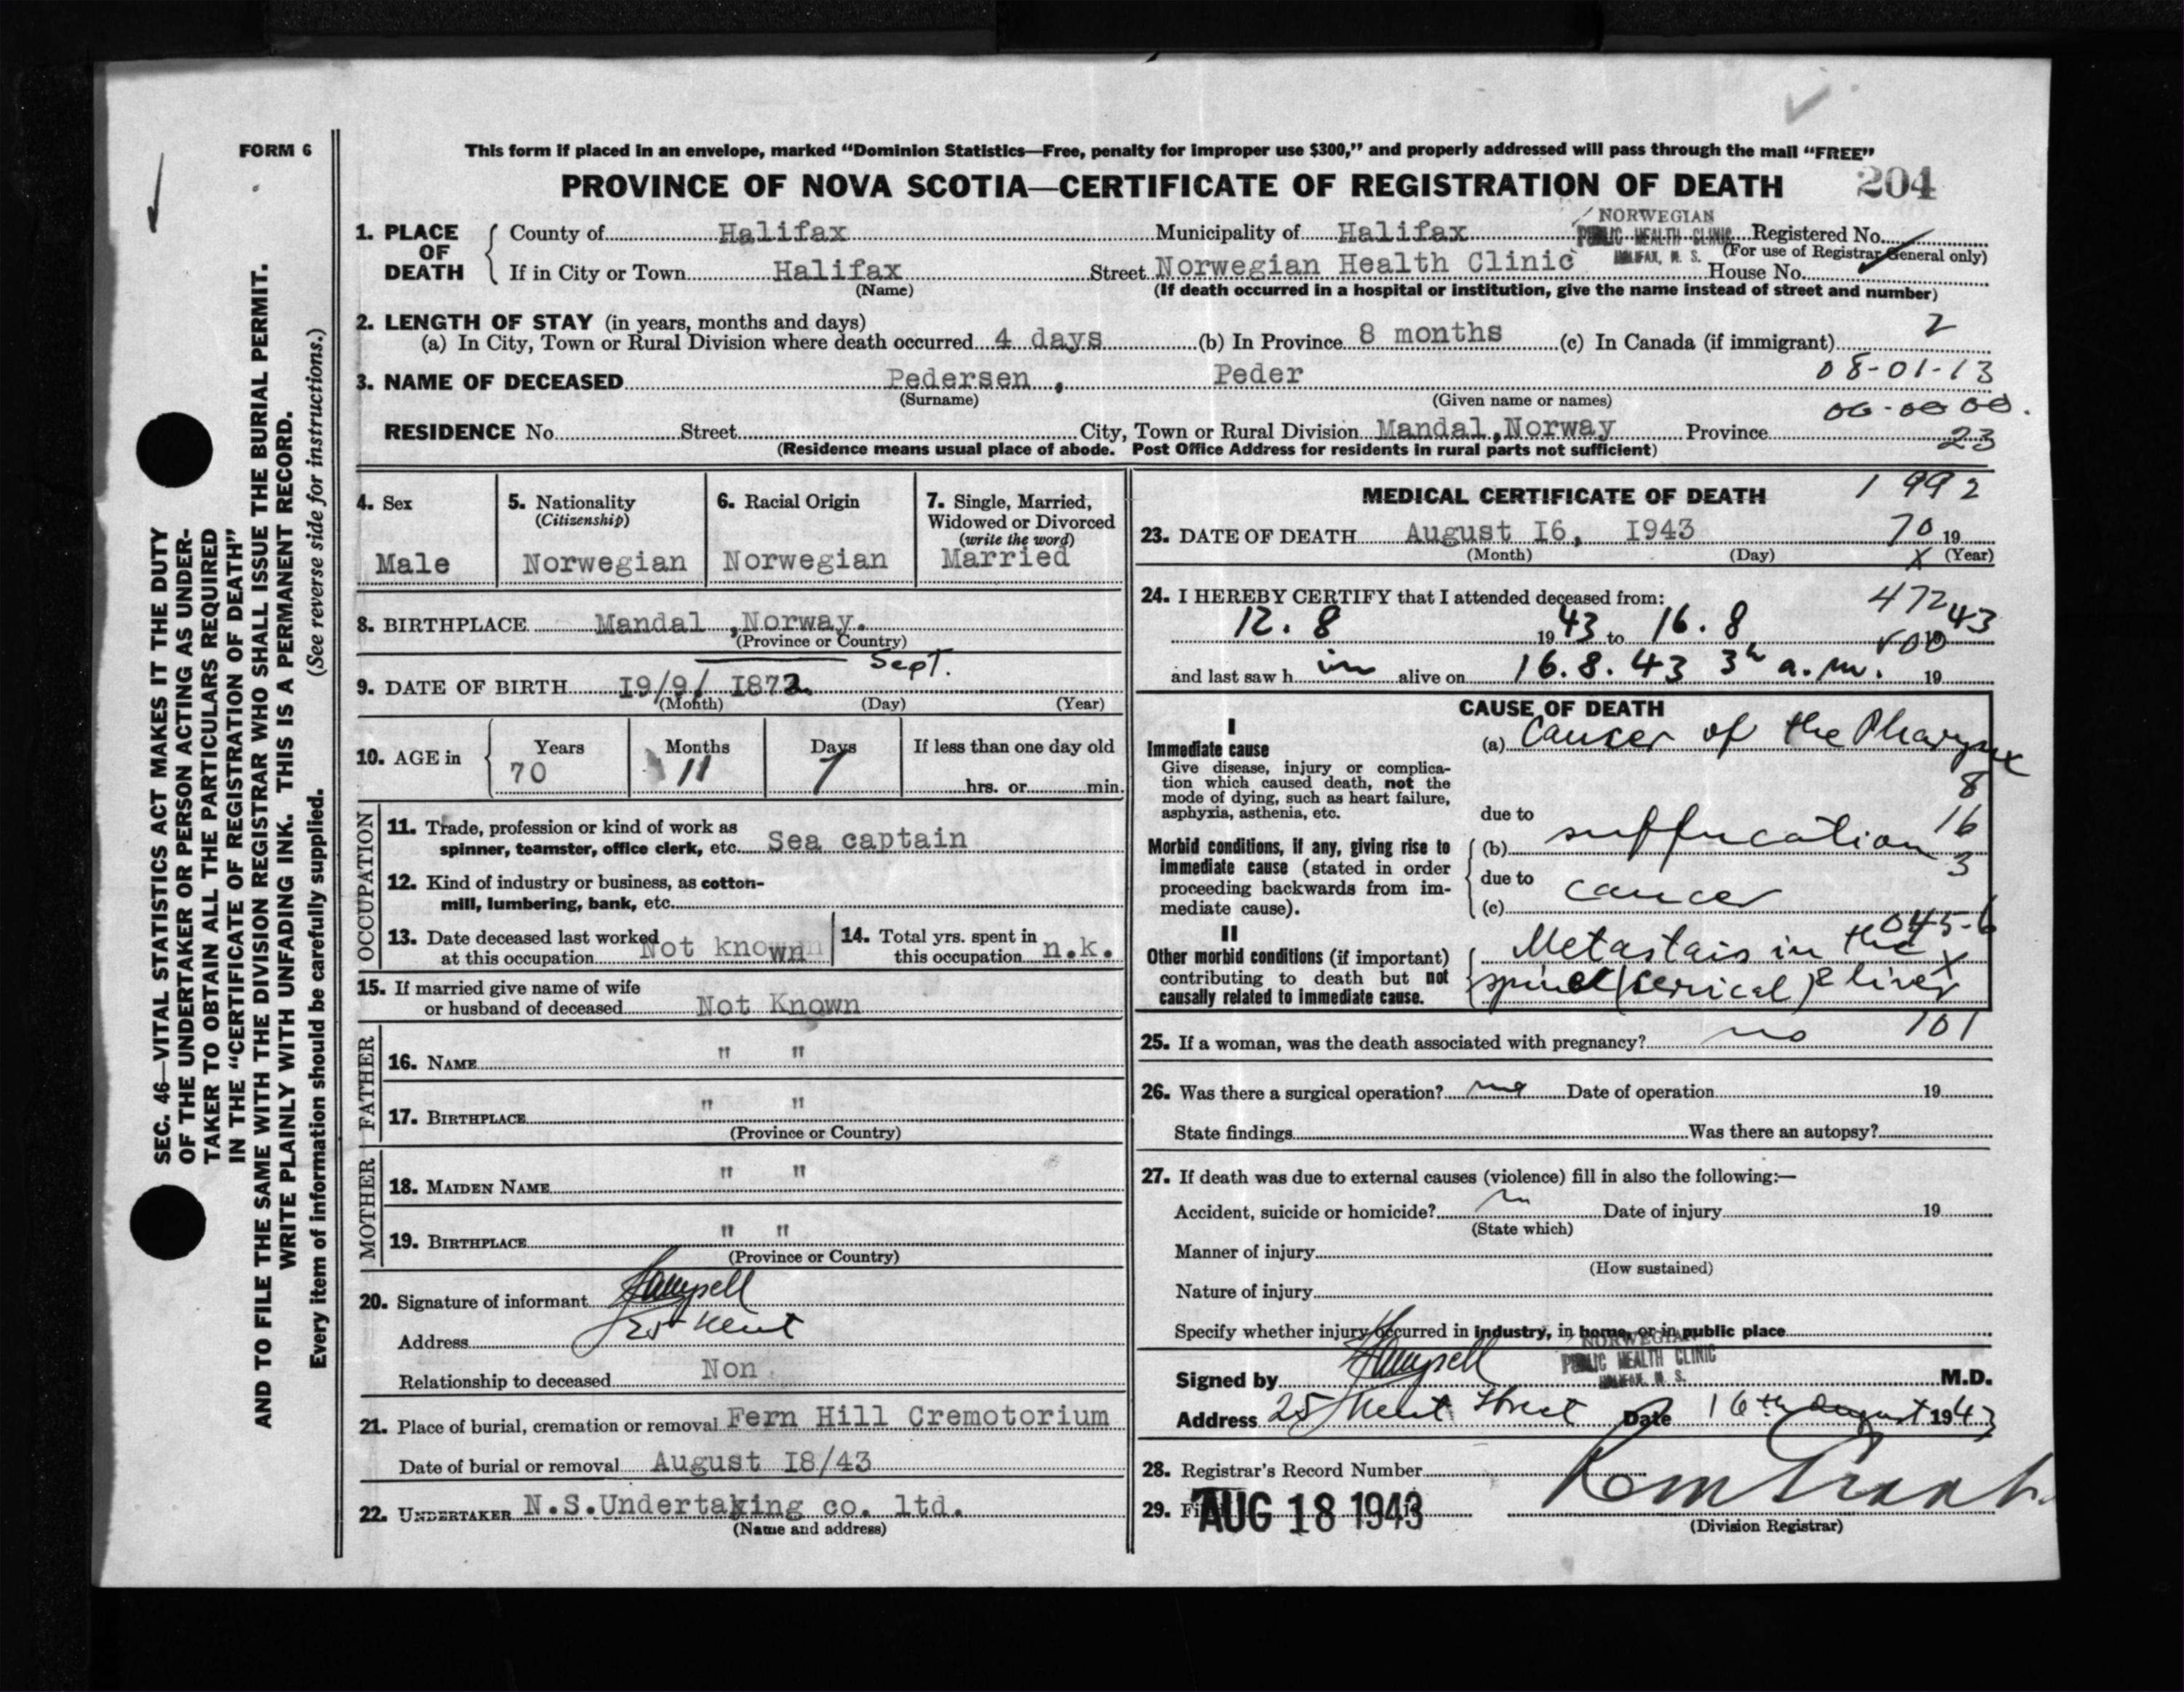 FORM 6
This form if placed in an envelope, marked “Dominion Statistics—Free, penalty for improper use $300,” and properly addressed will pass through the mail “FREE”
PROVINCE OF NOVA SCOTIA—CERTIFICATE OF REGISTRATION OF DEATH 204
SEC. 46—VITAL STATISTICS ACT MAKES IT THE DUTY
OF THE UNDERTAKER OR PERSON ACTING AS UNDER-
TAKER TO OBTAIN ALL THE PARTICULARS REQUIRED
IN THE “CERTIFICATE OF REGISTRATION OF DEATH”
AND TO FILE THE SAME WITH THE DIVISION REGISTRAR WHO SHALL ISSUE THE BURIAL PERMIT.
WRITE PLAINLY WITH UNFADING INK. THIS IS A PERMANENT RECORD.
Every item of information should be carefully supplied. (See reverse side for instructions.)
1. PLACE OF DEATH
County of Halifax Municipality of Halifax Registered No.
NORWEGIAN
PUBLIC HEALTH CLINIC
HALIFAX, N. S.
(For use of Registrar General only)
If in City or Town Halifax Street Norwegian Health Clinic House No.
(Name) (If death occurred in a hospital or institution, give the name instead of street and number)
2. LENGTH OF STAY (in years, months and days)
(a) In City, Town or Rural Division where death occurred 4 days (b) In Province 8 months (c) In Canada (if immigrant) 2
3. NAME OF DECEASED Pedersen , Peder 08-01-13
(Surname) (Given name or names)
RESIDENCE No. Street City, Town or Rural Division Mandal,Norway Province 23
(Residence means usual place of abode. Post Office Address for residents in rural parts not sufficient)
4. Sex
Male
5. Nationality
(Citizenship)
Norwegian
6. Racial Origin
Norwegian
7. Single, Married,
Widowed or Divorced
(write the word)
Married
8. BIRTHPLACE Mandal ,Norway.
(Province or Country)
Sept.
9. DATE OF BIRTH I9/9/ I872
(Month) (Day) (Year)
10. AGE in
Years Months Days If less than one day old
70 11 hrs. or min.
OCCUPATION
11. Trade, profession or kind of work as
spinner, teamster, office clerk, etc. Sea captain
12. Kind of industry or business, as cotton-
mill, lumbering, bank, etc.
13. Date deceased last worked
at this occupation Not known
14. Total yrs. spent in
this occupation n.k.
15. If married give name of wife
or husband of deceased Not Known
FATHER
16. NAME " "
17. BIRTHPLACE " "
(Province or Country)
MOTHER
18. MAIDEN NAME " "
19. BIRTHPLACE " "
(Province or Country)
20. Signature of informant
Address 25 Kent
Relationship to deceased Non
21. Place of burial, cremation or removal Fern Hill Cremotorium
Date of burial or removal August I8/43
22. UNDERTAKER N.S.Undertaking co. ltd.
(Name and address)
MEDICAL CERTIFICATE OF DEATH 1992
23. DATE OF DEATH August I6, I943 70 19
(Month) (Day) (Year)
24. I HEREBY CERTIFY that I attended deceased from: 472
12. 8 1943 to 16. 8 19 43
and last saw h im alive on 16.8.43 3h a.m. 19
CAUSE OF DEATH
I
Immediate cause
Give disease, injury or complica-
tion which caused death, not the
mode of dying, such as heart failure,
asphyxia, asthenia, etc.
(a) Cancer of the Pharynx
8
16
3
due to
Morbid conditions, if any, giving rise to
immediate cause (stated in order
proceeding backwards from im-
mediate cause).
(b) suffucation
due to
(c) cancer
045-6
II
Other morbid conditions (if important)
contributing to death but not
causally related to immediate cause.
Metastais in the
spinel (cerical) & liver
101
25. If a woman, was the death associated with pregnancy? no
26. Was there a surgical operation? Date of operation 19
State findings Was there an autopsy?
27. If death was due to external causes (violence) fill in also the following:—
Accident, suicide or homicide? Date of injury 19
(State which)
Manner of injury
(How sustained)
Nature of injury
Specify whether injury occurred in industry, in home, or in public place
NORWEGIAN
PUBLIC HEALTH CLINIC
HALIFAX, N. S.
Signed by M.D.
Address 25 Kent Street Date 16th August 1943
28. Registrar's Record Number
29. AUG 18 1943
(Division Registrar)